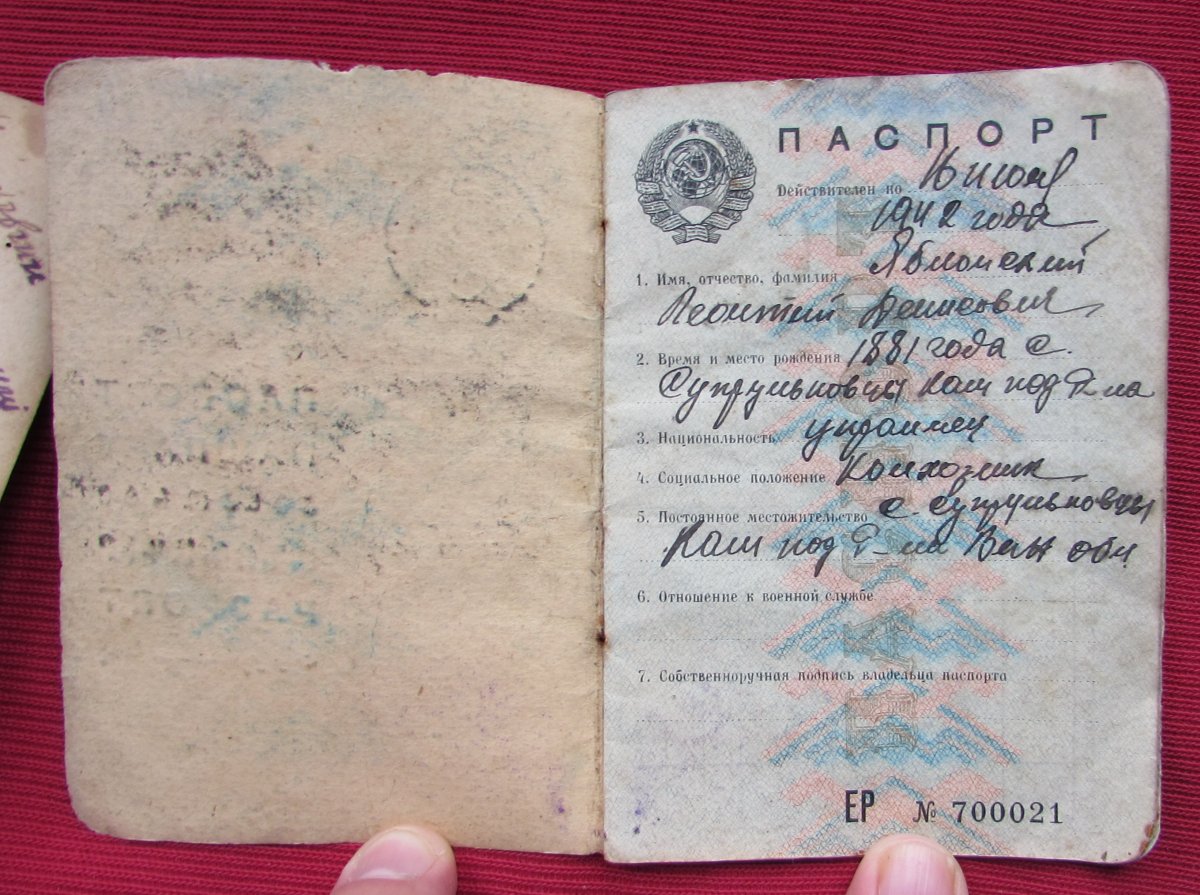 ПАСПОРТ
Действителен по 16 июля
1942 года
1. Имя, отчество, фамилия Яблонский
Леонтий Денисович
2. Время и место рождения 1881 года с.
Супрунковцы Кам под Р-на
3. Национальность украинец
4. Социальное положение Колхозник
5. Постоянное местожительство с. Супрунковцы
Кам под Р-на обл
6. Отношение к военной службе
7. Собственноручная подпись владельца паспорта
ЕР № 700021